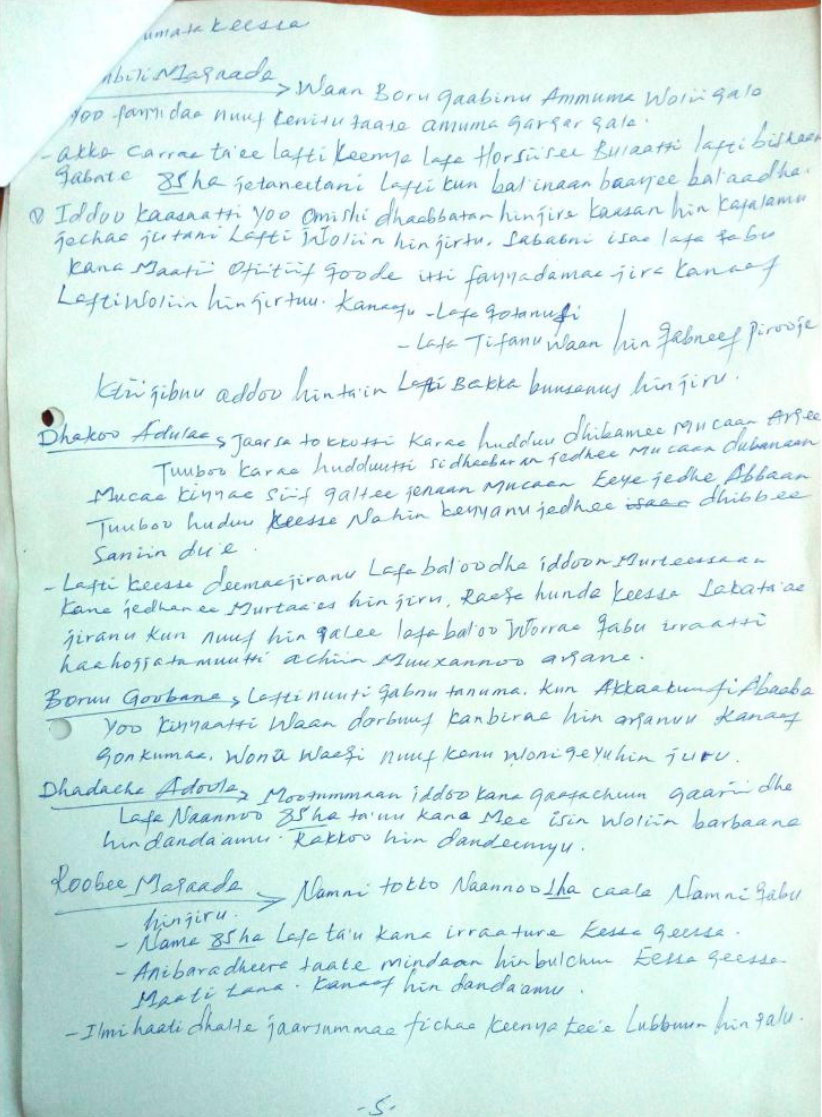 umata keessa
mbiti Magaada > Waan Boru gaabinu Ammuma Wolii gale
Yoo fayyidaa nuuf kenitu taate amuma gargar gale.
- akka carraa ta'ee lafti keenya lafa Horsiisee Bulaatti lafti biskaan
qabate 85ha jetaneetani Lafti kun bal'inaan baayee balaadha.
Iddoo kaasaatti yoo omishi dhaabbatan hinjire kaasan hin kafalamu
jechaa jirtani Lafti Woliin hinjirtu. Sababni isaa lafa qabu
kana Maatii Ofiitiif goode itti fayyadamaa jira kanaaf
Lafti Woliin hinjirtuu. Kanaafu - Lafa qotanufi
- Lafa Tifanu waan hin qabneef Pirooje
Ktii jibnu addoo hinta'in Lafti Bakka buusanus hinjiru.
Dhakoo Adulaa > Jaarsa tokkotti karaa hudduu dhibamee Mucaan Argee
Tuuboo karaa hudduutti si dhaabaran jedhee Mucaan dubanaan
Mucaa kiyyaa siif galtee jenaan Mucaan Eeye jedhe Abbaan
Tuuboo huduu keessa Nahin keyyanu jedhee dhibbee
Saniin du'e.
- Lafti keessa deemaa jiranu Lafa bal'oodha iddoon Murteessaan
kana jedhan ee Murtaa'es hinjiru. Raaga hunda keessa Sakata'aa
jiranu kun nuuf hin galee lafa bal'oo Worraa qabu irraatti
haahojjatamuutti achiin Muuxannoo argane.
Boruu Goobana > Lafti nuuti qabnu tanuma. Kun Akkaakuu fi Abaaba
Yoo kiyyaatti Waan dorbuuf kanbiraa hin arganuu kanaaf
gonkumaa. Wonti Waaqi nuuf kenu woni geyu hin juru.
Dhadacha Adoola > Mootummaan iddoo kana gaafachuun gaarii dha
Lafa Naannoo 85ha ta'uu kana Mee isin Woliin barbaana
hin danda'amu. Rakkoo hin dandeenyu.
Roobee Magaada > Namni tokko Naannoo 1ha caala Namni qabu
hinjiru.
- Nama 85ha Lafa ta'u kana irraa ture Eessa geessa.
- Ani bara dheera taate mindaan hin bulchuu Eessa geessa
Maati tana. Kanaaf hin danda'amu.
- Ilmi haati dhalte jaarsummaa fichaa keenya tee'e Lubbuun hin galu.
-5-